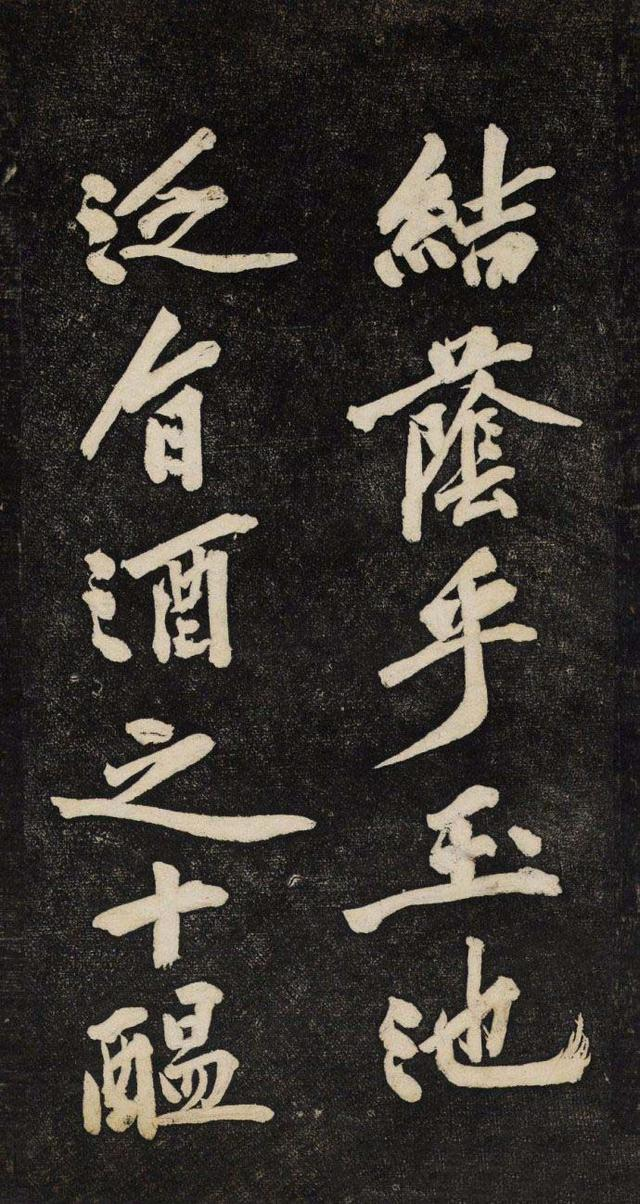 結蔭乎玉池
泛旨酒之十醞